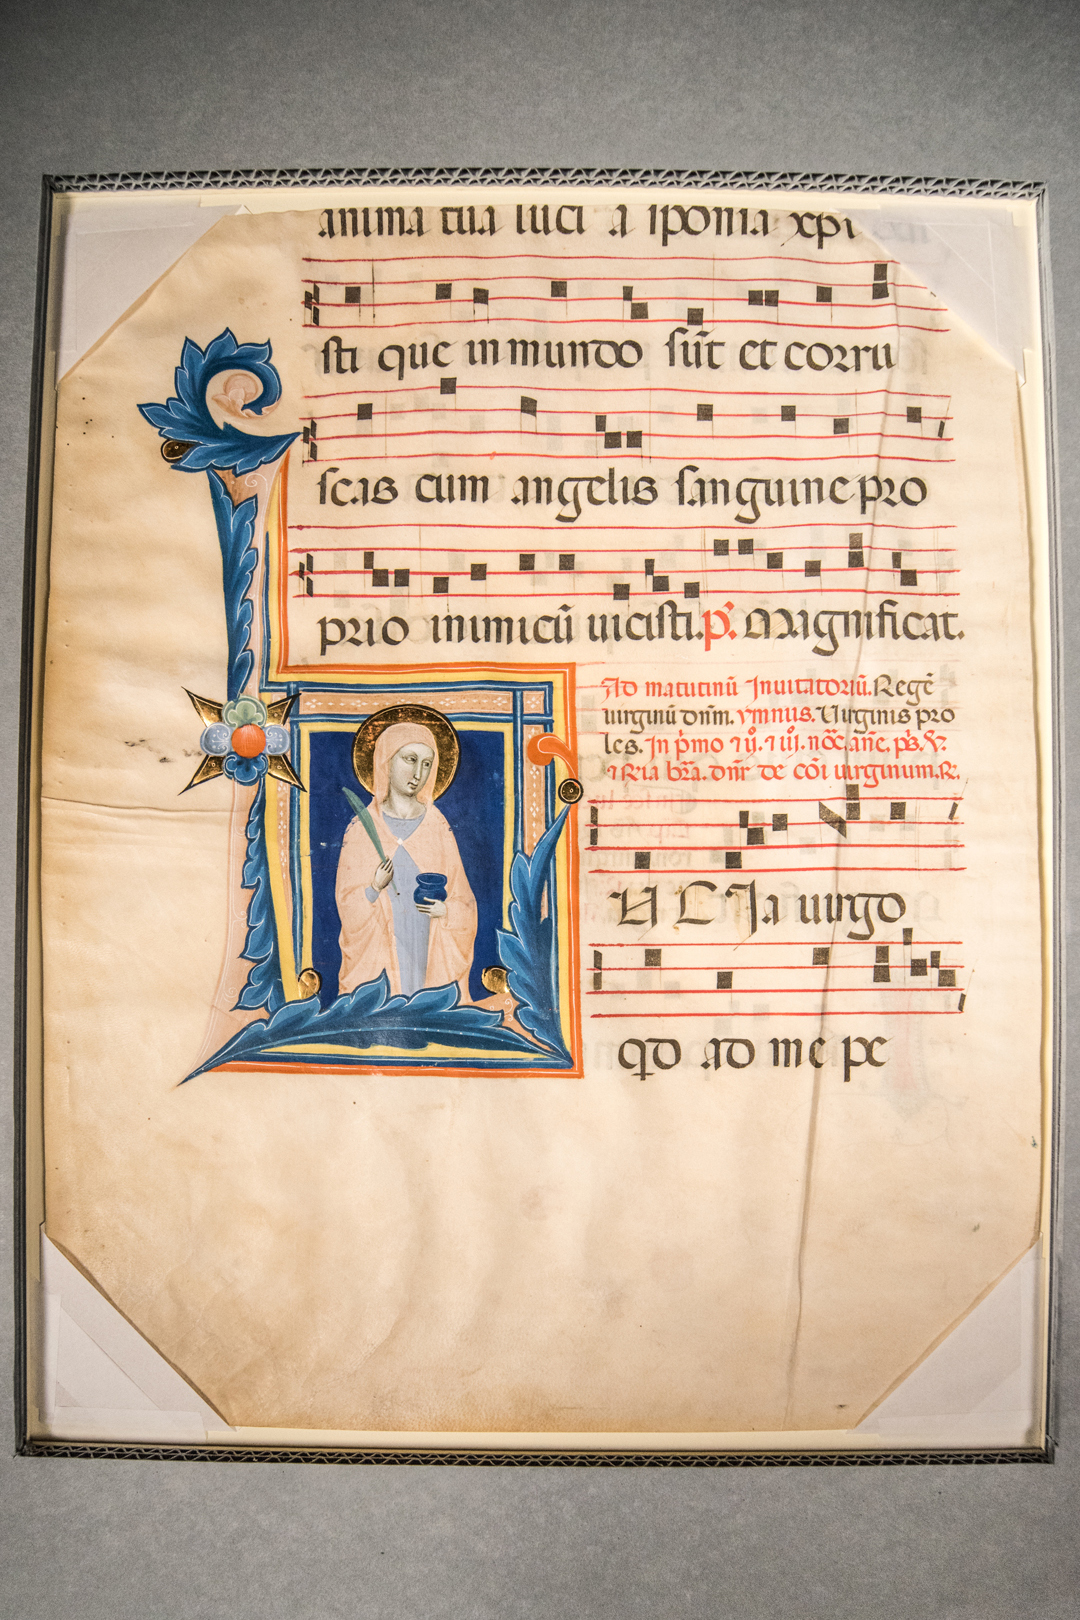 anima tua luci a sponsa xpi
sti que in mundo sūt et corru
scas cum angelis sanguine pro
prio inimicū uicisti. p̄s. Magnificat.
Ad matutinū Inuitatoriū. Regē
uirginū dnm. ymnus. Uirginis pro
les. In p̄mo ⁊ ij. ⁊ iij. noc̄. an̄e. ps̄. V̄.
⁊ R̄ia br̄a. dnr̄ de cōi uirginum. R̄.
UCIa uirgo
qd ad me pe